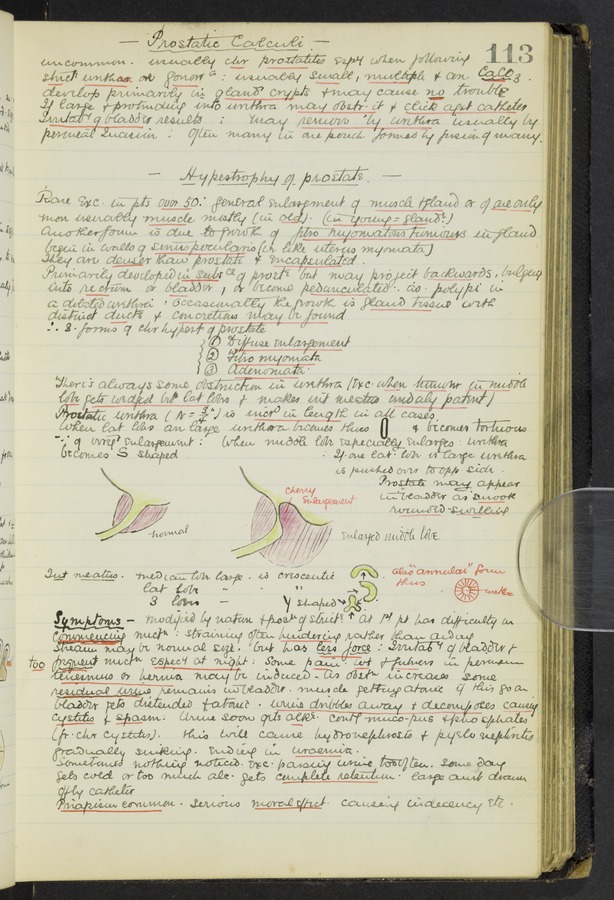 — Prostatic Calculi —
113
uncommon. usually chr prostatitis espy when following
strict urethra or gonorra : usually small, multiple & an CaCO3.
develop primarily in gland crypts & may cause no trouble
If large & protruding into urethra may obstr. it & click agst catheter
Irritaby of bladder results : may remove by urethra usually by
perineal incision : often many in one pouch formed by fusing many.
— Hypertrophy of prostate. —
Rare exc. in pts over 50 : general enlargement of muscle & gland or of one only
more usually muscle mostly (in old). (in young = gland.)
Another form is due to growth of fibro myomatous tumours in gland
begin in walls of (in like uterus myomata)
They are denser than prostate & encapsulated.
Primarily developed in subsce of prost. but may project backwards, bulging
into rectum or bladder, or become pedunculated as polypi in
a dilated urethra. Occasionally the growth is gland tissue with
distinct ducts & concretions may be found
∴ 3 forms of chr hypert of prostate
① Diffuse enlargement
② Fibro myomata
③ Adenomata
There's always some obstruction in urethra (exc. when tumour in middle
lobe gets wedged bet lat lobes & makes int meatus unduly patent)
Prostatic urethra (N = ) is incrd in length in all cases
When lat lobes are large urethra becomes thus 0 & becomes tortuous
if irregr enlargement : When middle lobe especially enlarges urethra
becomes S shaped : If one lat. lobe is large urethra
is pushed over to opp side.
Prostate may appear
in bladder as smooth
rounded swelling
normal
cherry
enlargement
enlarged middle lobe
Int meatus. median lobe large. is crescentic
lat lobe " "
3 lobes — " Y shaped
also "annular" form
thus
urethra
Symptoms — modified by nature & post of strict. At 1st pt has difficulty in
commencing mictn : straining often hindering rather than aiding
Stream may be normal size. but has less force : Irritaby of bladder &
too frequent mictn especy at night : some pain. wt & fulness in perineum
tenesmus or hernia may be induced - as obstn increases some
residual urine remains in bladder. muscle getting atonic if this go on
bladder gets distended & atonic. urine dribbles away & decomposes causing
cystitis & spasm. Urine soon gets alke. contg muco-pus & phosphates
(fr. chr cystitis). this will cause hydronephrosis & pyelo nephritis
gradually sinking. Ending in uraemia.
Sometimes nothing noticed. exc. passing urine too often. some day
gets cold or too much alc. gets complete retention. large amt drawn
off by catheter
Priapism common. serious moral effect. causing indecency etc.